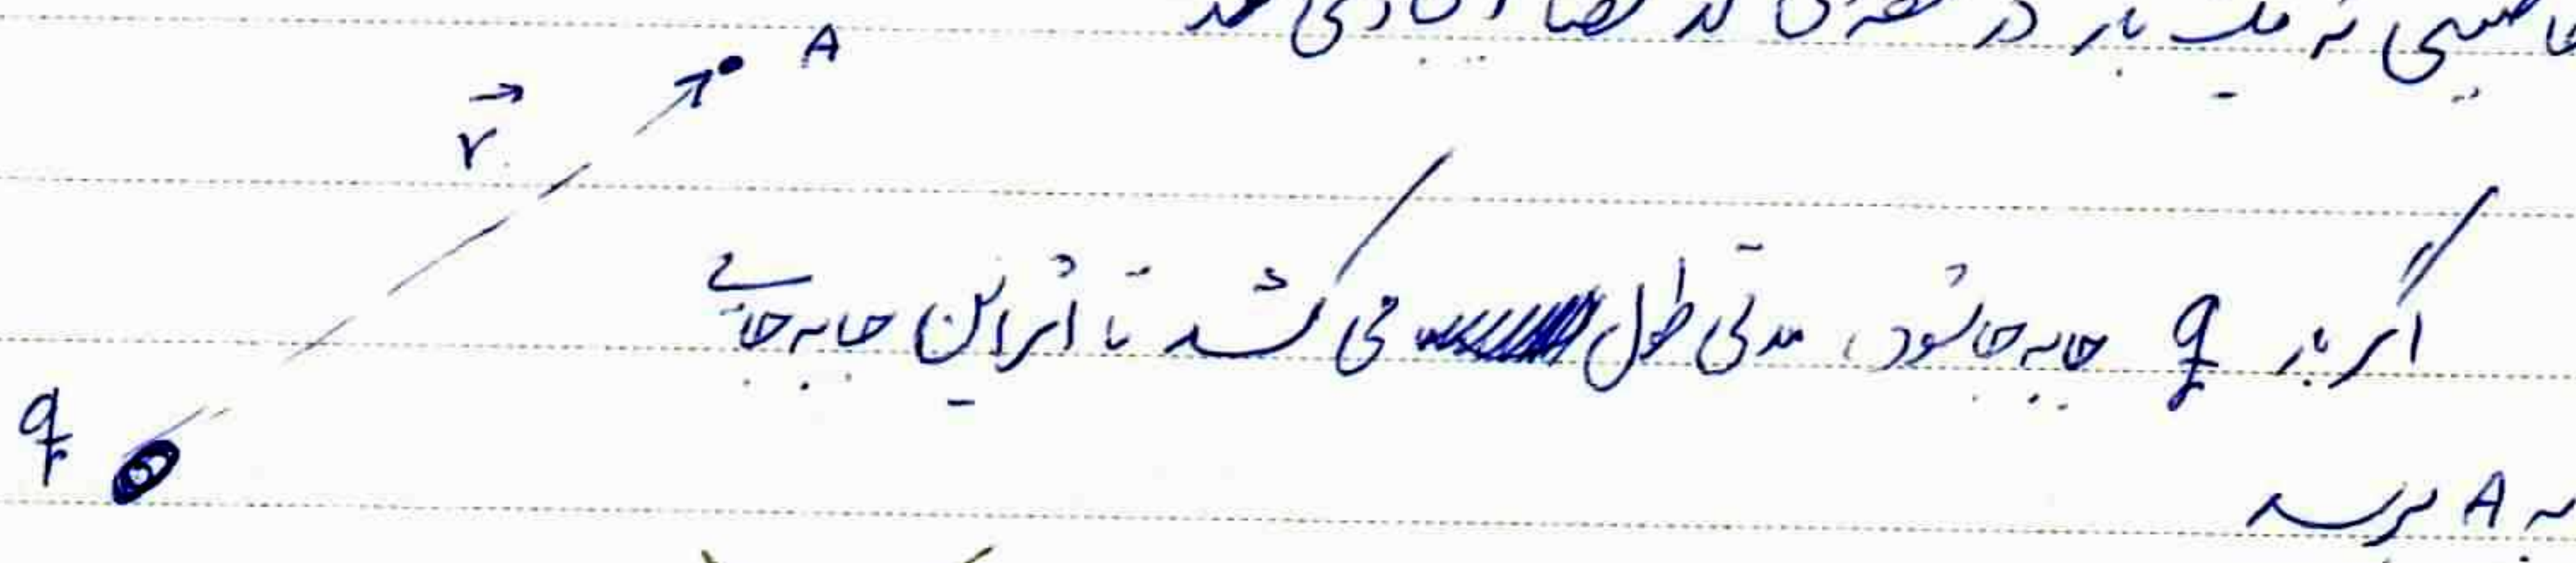 خاصیتی که یک بار در نقطه‌ی در فضا ایجاد می کند
A
r
اگر بار q جابه‌جا شود، مدتی طول می کشد تا اثر این جابه‌جایی
q
به A برسد